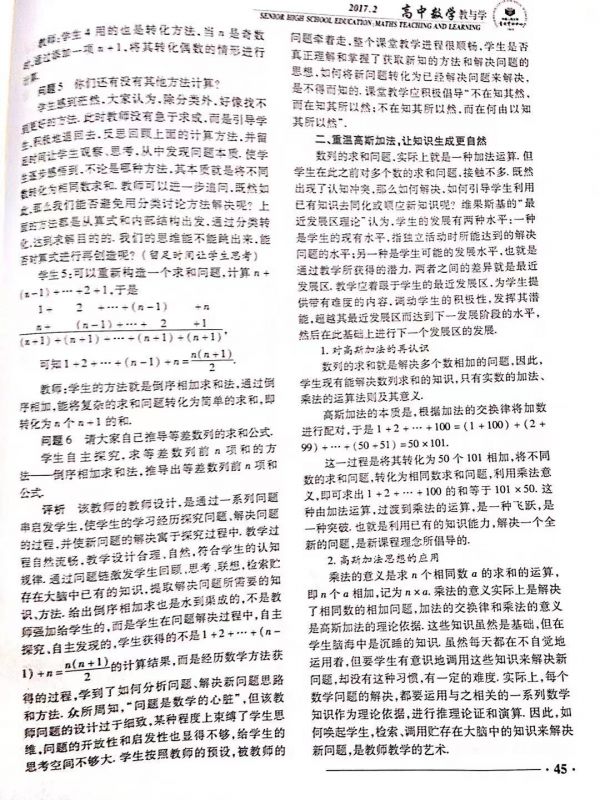 2017.2
高中数学教与学
SENIOR HIGH SCHOOL EDUCATION: MATHS TEACHING AND LEARNING
教师:学生 4 用的也是转化方法,当 n 是奇数
的,通过添加一项 n+1,将其转化偶数的情形进行
计算.
问题5 你们还有没有其他方法计算?
学生感到茫然,大家认为,除分类外,好像找不
到更好的方法.此时教师没有急于求成,而是引导学
生,积极地退回去,反思回顾上面的计算方法,并留
足时间让学生观察、思考,从中发现问题本质.使学
生逐步感悟到,不论是哪种方法,其本质就是将不同
数转化为相同数求和.教师可以进一步追问,既然如
此,那么我们能否避免用分类讨论方法解决呢?上
面的方法都是从算式和内部结构出发,通过分类转
化,达到求解目的的.我们的思维能不能跳出来,能
否对算式进行再创造呢?(留足时间让学生思考)
学生5:可以重新构造一个求和问题,计算 n+
(n-1)+…+2+1,于是
1+ 2 +…+(n-1) +n
n+ (n-1)+…+ 2 +1
(n+1)+(n+1)+…+(n+1)+(n+1),
可知1+2+…+(n-1)+n=n(n+1)/2.
教师:学生的方法就是倒序相加求和法,通过倒
序相加,能将复杂的求和问题转化为简单的求和,即
转化为 n 个 n+1 的和.
问题6 请大家自己推导等差数列的求和公式.
学生自主探究,求等差数列前 n 项和的方
法——倒序相加求和法,推导出等差数列前 n 项和
公式.
评析 该教师的教师设计,是通过一系列问题
串启发学生,使学生的学习经历探究问题、解决问题
的过程,并使新问题的解决寓于探究过程中.教学过
程自然流畅,教学设计合理、自然,符合学生的认知
规律.通过问题链激发学生回顾、思考、联想、检索贮
存在大脑中已有的知识,提取解决问题所需要的知
识、方法.给出倒序相加求也是水到渠成的,不是教
师强加给学生的,而是学生在问题解决过程中,自主
探究、自主发现的,学生获得的不是1+2+…+(n-
1)+n=n(n+1)/2的计算结果,而是经历数学方法获
得的过程,学到了如何分析问题、解决新问题思路
和方法.众所周知,“问题是数学的心脏”,但该教
师问题的设计过于细致,某种程度上束缚了学生思
维,问题的开放性和启发性也显得不够,给学生的
思考空间不够大.学生按照教师的预设,被教师的
问题牵着走,整个课堂教学进程很顺畅,学生是否
真正理解和掌握了获取新知的方法和解决问题的
思想,如何将新问题转化为已经解决问题来解决,
是不得而知的.课堂教学应积极倡导“不在知其然,
而在知其所以然;不在知其所以然,而在何由以知
其所以然”.
二、重温高斯加法,让知识生成更自然
数列的求和问题,实际上就是一种加法运算.但
学生在此之前对多个数的求和问题,接触不多.既然
出现了认知冲突,那么如何解决,如何引导学生利用
已有知识去同化或顺应新知识呢?维果斯基的“最
近发展区理论”认为,学生的发展有两种水平:一种
是学生的现有水平,指独立活动时所能达到的解决
问题的水平;另一种是学生可能的发展水平,也就是
通过教学所获得的潜力.两者之间的差异就是最近
发展区.教学应着眼于学生的最近发展区,为学生提
供带有难度的内容,调动学生的积极性,发挥其潜
能,超越其最近发展区而达到下一发展阶段的水平,
然后在此基础上进行下一个发展区的发展.
1.对高斯加法的再认识
数列的求和就是解决多个数相加的问题,因此,
学生现有能解决数列求和的知识,只有实数的加法、
乘法的运算法则及其意义.
高斯加法的本质是,根据加法的交换律将加数
进行配对,于是1+2+…+100=(1+100)+(2+
99)+…+(50+51)=50×101.
这一过程是将其转化为 50 个 101 相加,将不同
数的求和问题,转化为相同数求和问题,利用乘法意
义,即可求出1+2+…+100 的和等于101×50.这
种由加法运算,过渡到乘法的运算,是一种飞跃,是
一种突破.也就是利用已有的知识能力,解决一个全
新的问题,是新课程理念所倡导的.
2.高斯加法思想的应用
乘法的意义是求 n 个相同数 a 的求和的运算,
即 n 个 a 相加,记为 n×a.乘法的意义实际上是解决
了相同数的相加问题,加法的交换律和乘法的意义
是高斯加法的理论依据.这些知识虽然是基础,但在
学生脑海中是沉睡的知识.虽然每天都在不自觉地
运用着,但要学生有意识地调用这些知识来解决新
问题,却没有这种习惯,有一定的难度.实际上,每个
数学问题的解决,都要运用与之相关的一系列数学
知识作为理论依据,进行推理论证和演算.因此,如
何唤起学生,检索、调用贮存在大脑中的知识来解决
新问题,是教师教学的艺术.
·45·